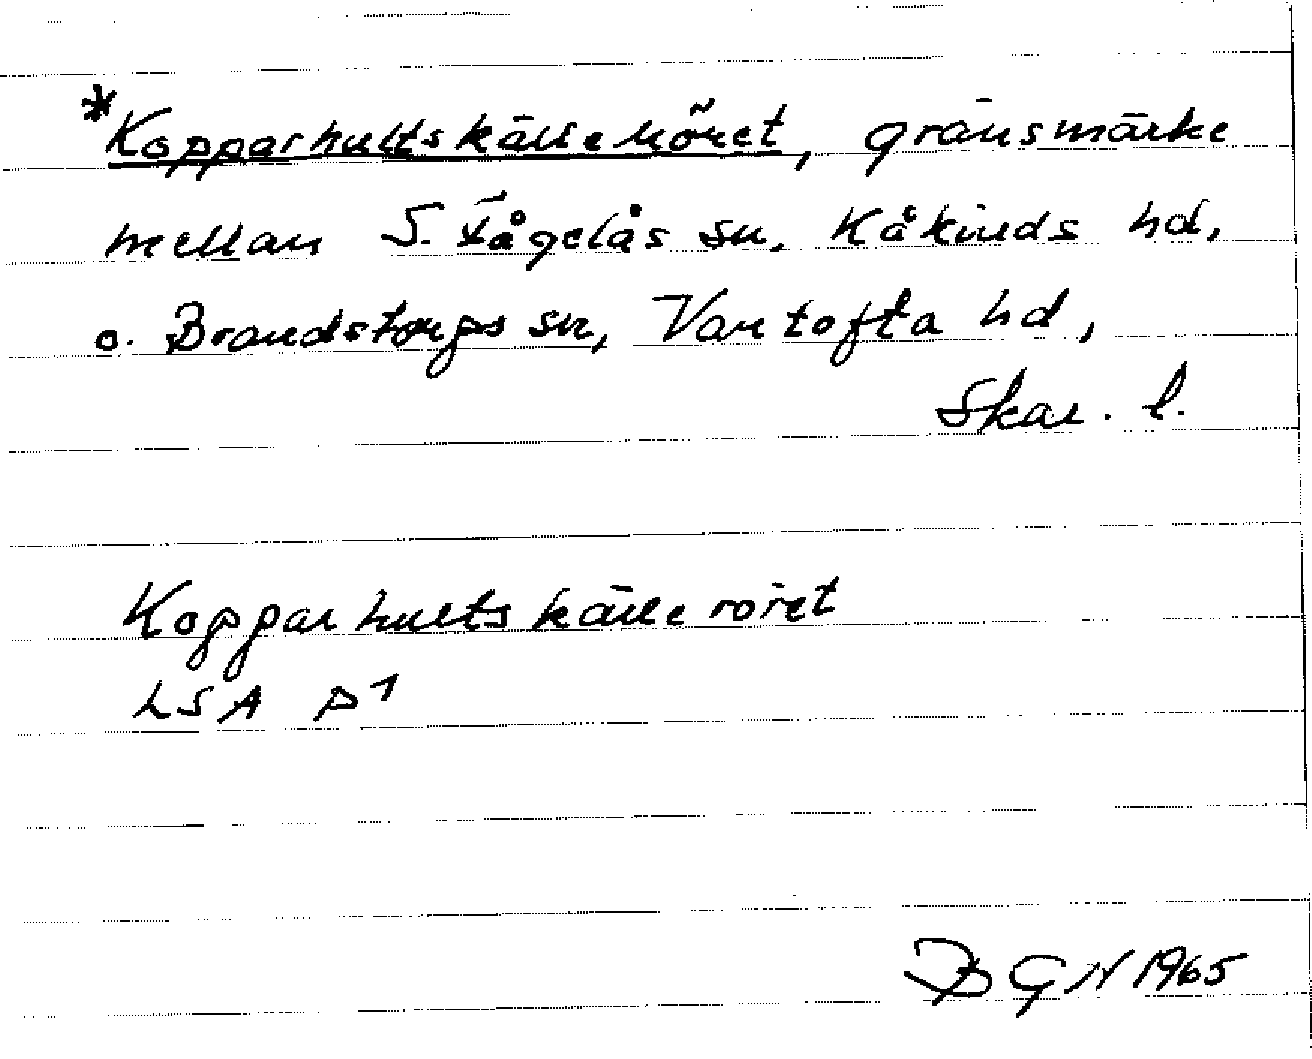 *Kopparhultskälleröret, gränsmärke
mellan S. Fågelås sn, Kåkinds hd,
o. Brandstorps sn, Vartofta hd,
Skar. l.
Kopparhultskälleröret
LSA P 1
GN 1965